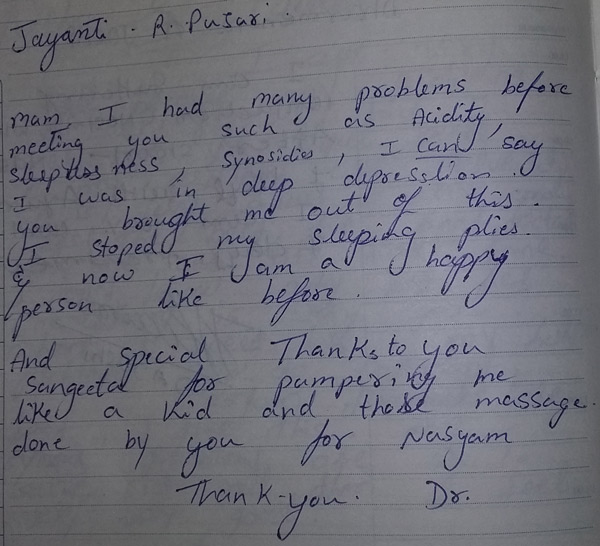 Jayanti. R. Pujari.
mam, I had many problems before
meeting you such as Acidity,
sleeplessness, Synosidies, I can say
I was in deep depresstion.
you brought me out of this.
I stoped my sleeping plies.
& now I am a happy
person like before.
And special Thanks to you
Sangeeta for pampering me
like a kid and those massage.
done by you for Nasyam
Thank-you. Dr.